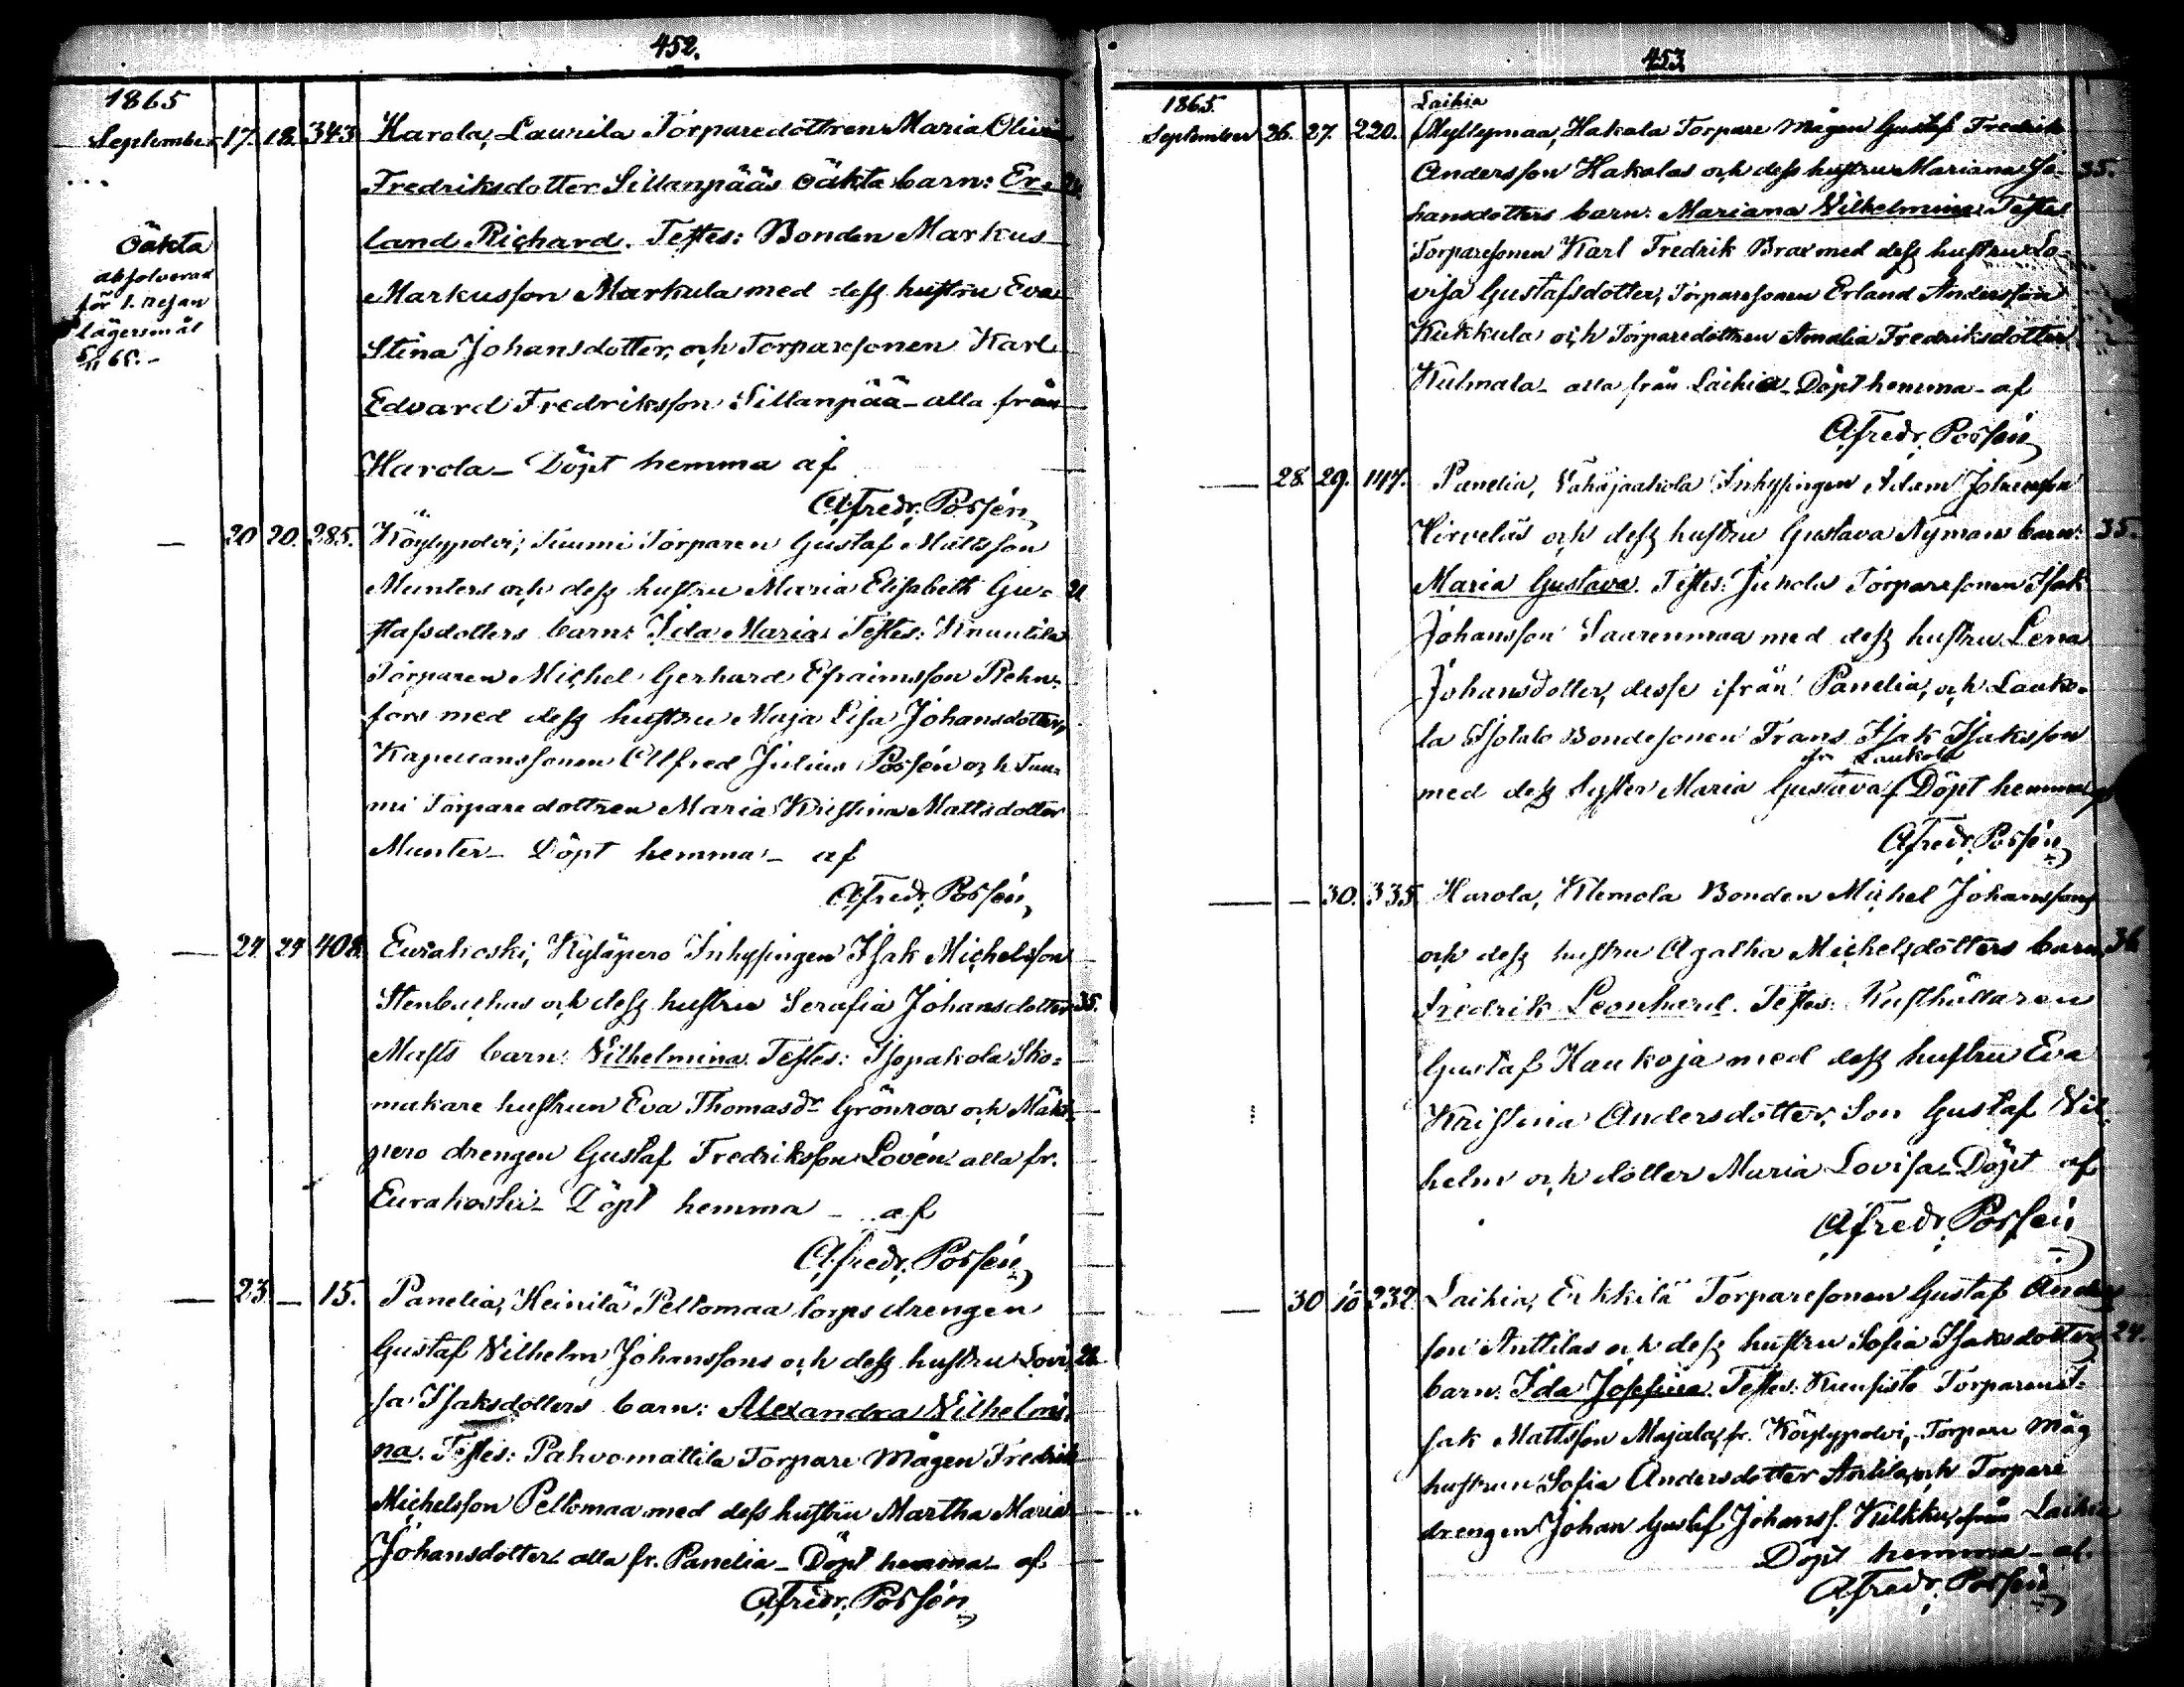 452.
1865
September 17. 18. 343. Harola, Laurila Torparedottren Maria Olivia
Fredriksdotter Sillanpääs oäkta barn: Er-
land Richard. Testes: Bonden Markus
Oäkta
absolverad
för 1. resan
lägersmål
Markusson Markula med dess hustru Eva
Stina Johansdotter, och Torparesonen Karl
Edvard Fredriksson Sillanpää - alla från
Harola - Döpt hemma af
A. Fredr. Possén
20 20. 285. Köylypolvi, Tuumi Torparen Gustaf Mattsson
Munters och dess hustru Maria Elisabeth Gu- 21
stafsdotters barn: Ida Maria. Testes: Knuutila
Torparen Michel Gerhard Efraimsson Rehn-
fors med dess hustru Maja Lisa Johansdotter,
Kapellanssonen Alfred Julius Possén och Tuu-
mi Torparedottren Maria Kristina Mattsdotter
Munter - Döpt hemma - af
A. Fredr. Possén
24. 24 408. Eurakoski, Kyläpero Inhysingen Isak Michelsson
Stenbachas och dess hustru Serafia Johansdotter 35.
Masts barn: Vilhelmina. Testes: Isopakola Sko-
makare hustrun Eva Thomasdr Grönroos och Mäki-
pero drengen Gustaf Fredriksson Lovén alla fr.
Eurakoski - Döpt hemma - af
A. Fredr. Possén
23. 15. Panelia, Heinilä Peltomaa torps drengen
Gustaf Vilhelm Johanssons och dess hustru Lovi-
sa Isaksdotters barn: Alexandra Vilhelmi-
na. Testes: Pahvomattila Torpare Mågen Fredrik
Michelsson Peltomaa med dess hustru Martha Maria
Johansdotter alla fr. Panelia - Döpt hemma - af
A. Fredr. Possén
453.
1865.
Laihia
September 26. 27. 220. Myllymaa, Hakala Torpare Mågen Gustaf Fredrik
Andersson Hakalas och dess hustru Mariana Jo- 35.
hansdotters barn: Mariana Vilhelmina. Testes
Torparesonen Karl Fredrik Brax med dess hustru Lo-
visa Gustafsdotter, Torparesonen Erland Andersson
Kukkula och Torparedottren Amalia Fredriksdotter
Kulmala - alla från Laihia - Döpt hemma - af
A. Fredr. Possén
28. 29. 147. Panelia, Vähäjaakola Inhysingen Adam Johansson
Hirveläs och dess hustru Gustava Nymans barn: 35.
Maria Gustava. Testes: Junola Torparesonen Isak
Johansson Saarenmaa med dess hustru Lena
Johansdotter, desse ifrån Panelia, och Lauko-
la Isotalo Bondesonen Frans Isak Isaksson
ifr. Laukola
med dess syster Maria Gustava Döpt hemma af
A. Fredr. Possén
30. 335. Harola, Klemola Bonden Michel Johanssons
och dess hustru Agatha Michelsdotters barn 36
Fredrik Leonhard. Testes: Rusthållaren
Gustaf Kaukoja med dess hustru Eva
Kristina Andersdotter, Son Gustaf Vil-
helm och dotter Maria Lovisa - Döpt af
A. Fredr. Possén
30 232. Laihia, Erkkilä Torparesonen Gustaf Anders-
son Anttilas och dess hustru Sofia Isaksdotters 24.
barn: Ida Josefina. Testes: Kuusisto Torparen I-
sak Mattsson Majala, fr. Köylypolvi, Torpare Måg
hustrun Sofia Andersdotter Anttila, och Torpare
drengen Johan Gustaf Johanss. Kilkku, ifrån Laihia
Döpt hemma - af.
A. Fredr. Possén